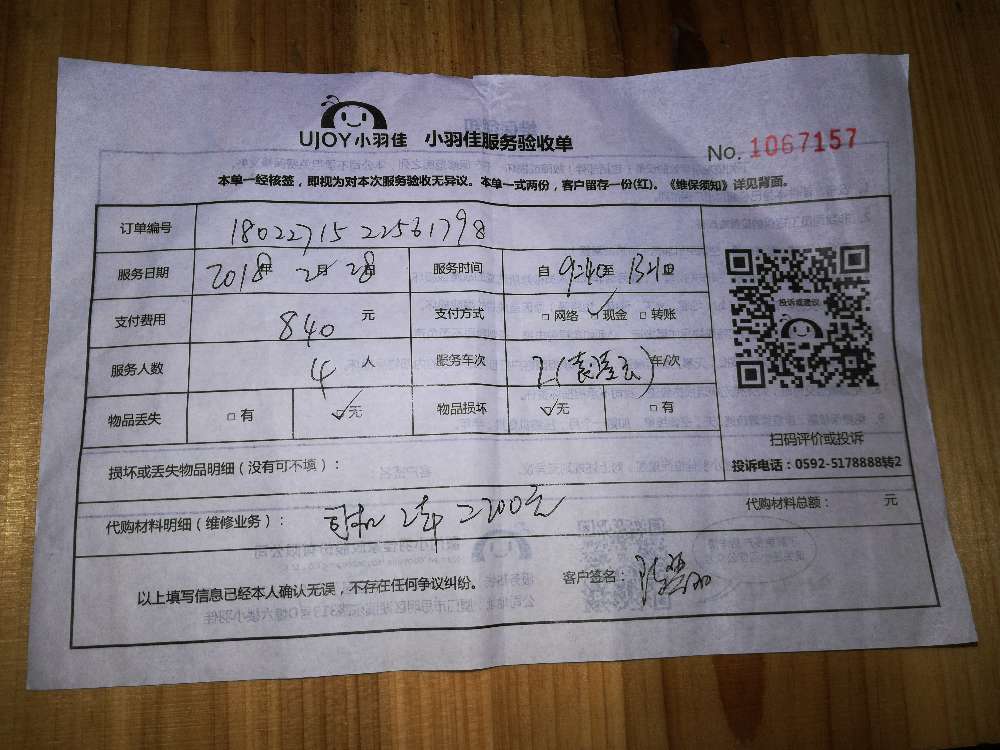 UJOY小羽佳 小羽佳服务验收单
No. 1067157
本单一经核签，即视为对本次服务验收无异议。本单一式两份，客户留存一份(红)。《维保须知》详见背面。
订单编号 1802271522561798
服务日期 2018年 2月 28日 服务时间 自 9:40至
支付费用 840 元 支付方式 □网络 ☑现金 □转账
服务人数 4 人 服务车次 2 车/次
物品丢失 □有 ☑无 物品损坏 ☑无 □有
投诉或建议
扫码评价或投诉
投诉电话：0592-5178888转2
损坏或丢失物品明细（没有可不填）：
代购材料明细（维修业务）： 司机 2车 2200元 代购材料总额： 元
以上填写信息已经本人确认无误，不存在任何争议纠纷。 客户签名：